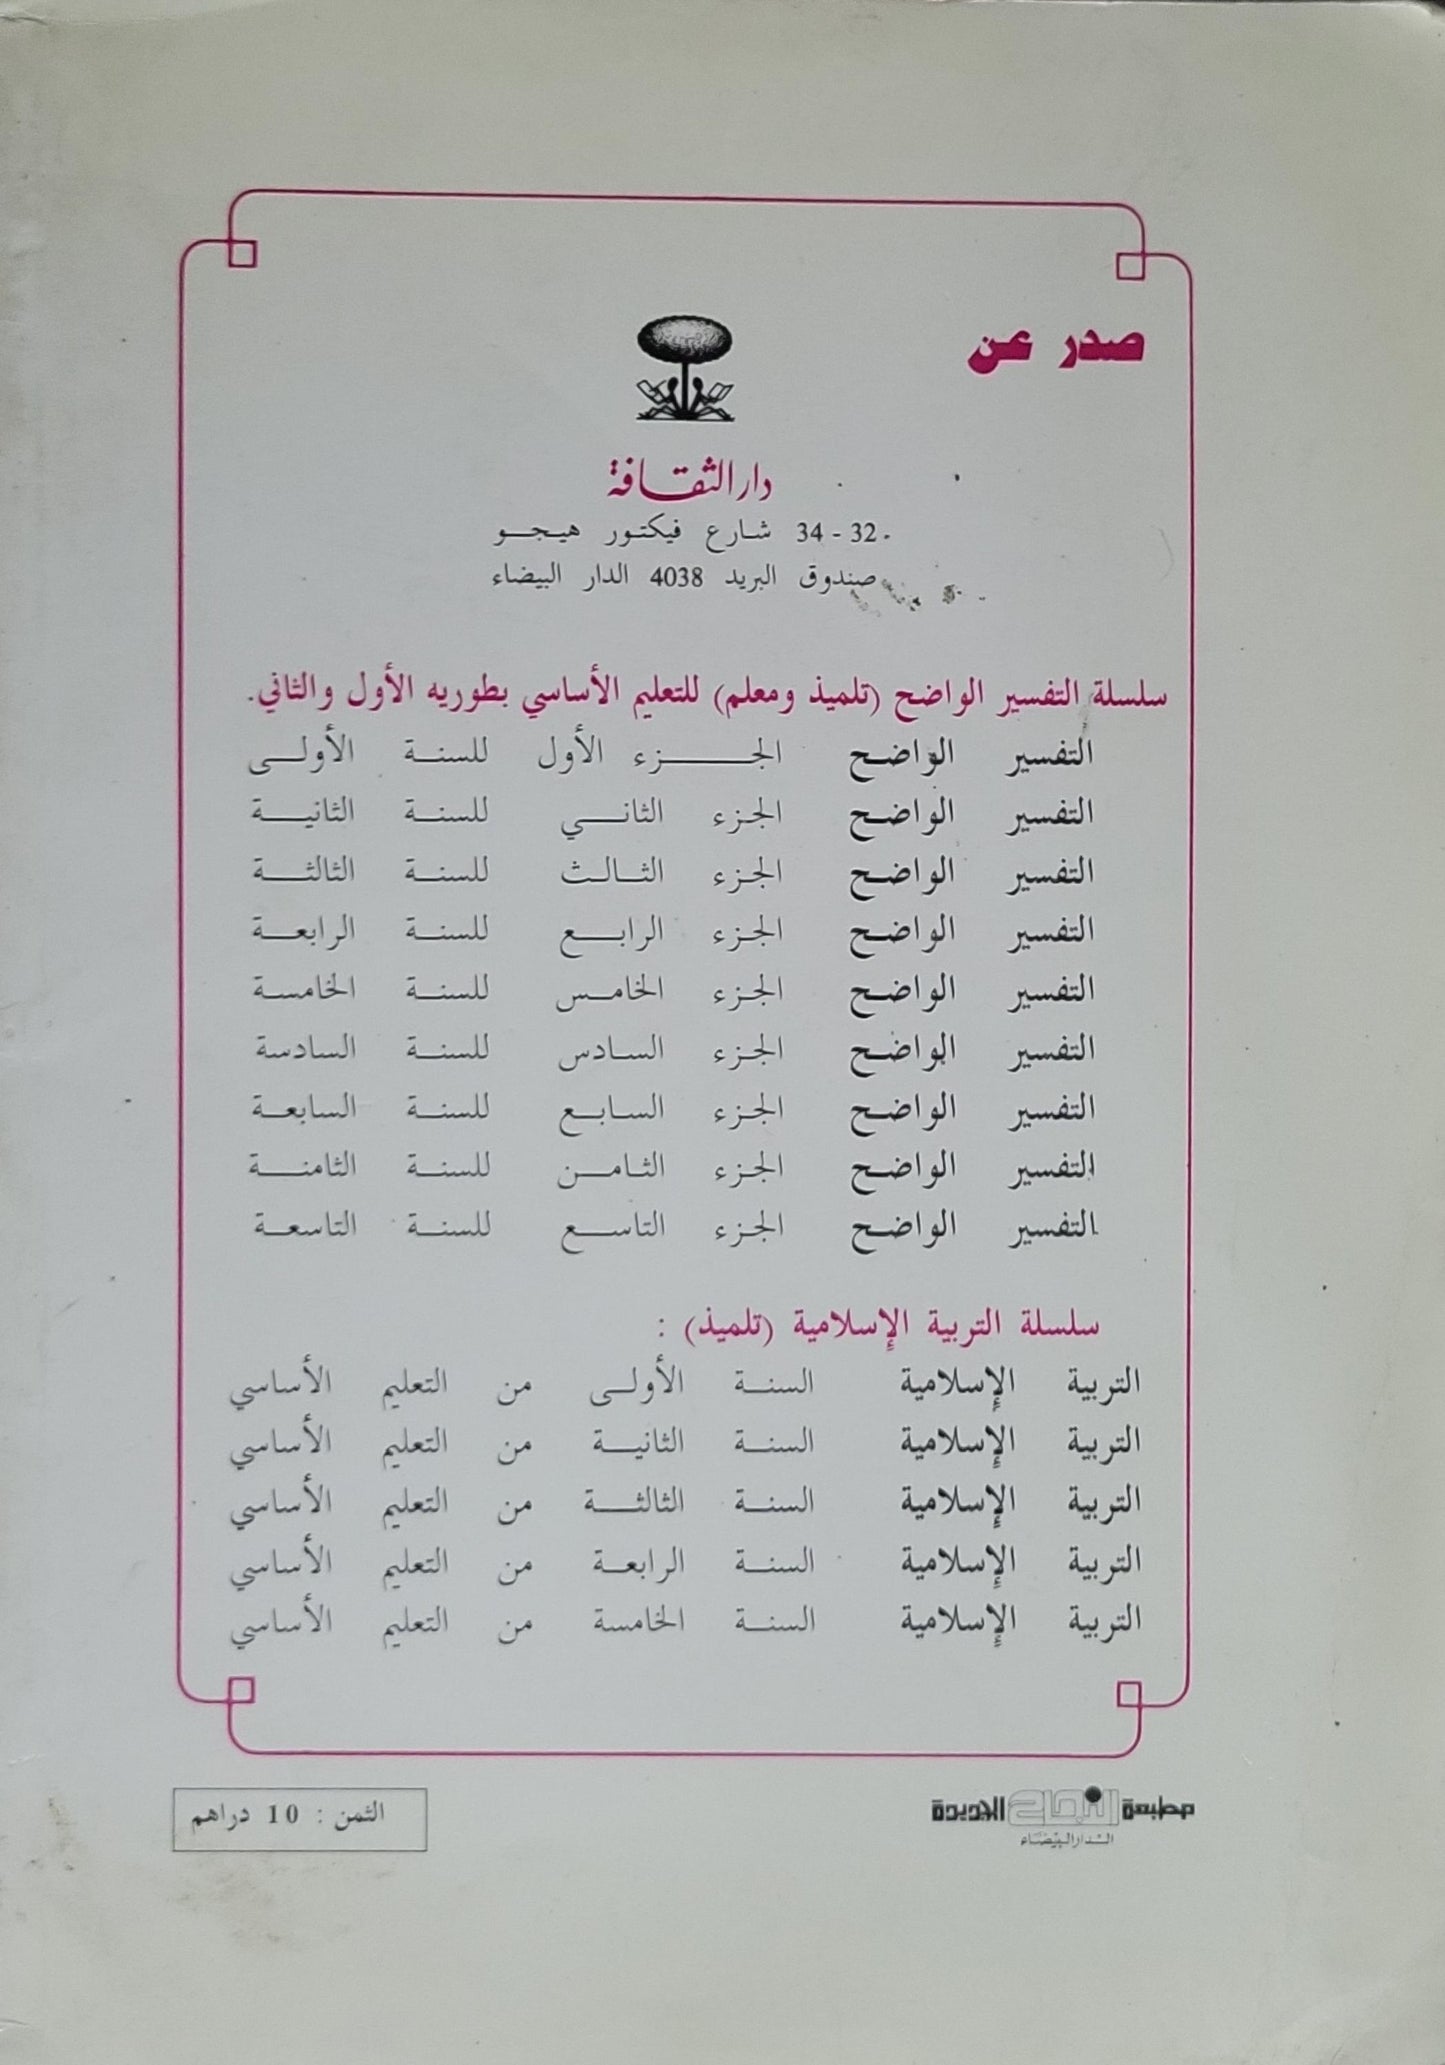 صدر عن
دار الثقافة
32 - 34 شارع فيكتور هيجو
صندوق البريد 4038 الدار البيضاء
سلسلة التفسير الواضح (تلميذ ومعلم) للتعليم الأساسي بطوريه الأول والثاني.
التفسير الواضح الجزء الأول للسنة الأولى
التفسير الواضح الجزء الثاني للسنة الثانية
التفسير الواضح الجزء الثالث للسنة الثالثة
التفسير الواضح الجزء الرابع للسنة الرابعة
التفسير الواضح الجزء الخامس للسنة الخامسة
التفسير الواضح الجزء السادس للسنة السادسة
التفسير الواضح الجزء السابع للسنة السابعة
التفسير الواضح الجزء الثامن للسنة الثامنة
التفسير الواضح الجزء التاسع للسنة التاسعة
سلسلة التربية الإسلامية (تلميذ) :
التربية الإسلامية السنة الأولى من التعليم الأساسي
التربية الإسلامية السنة الثانية من التعليم الأساسي
التربية الإسلامية السنة الثالثة من التعليم الأساسي
التربية الإسلامية السنة الرابعة من التعليم الأساسي
التربية الإسلامية السنة الخامسة من التعليم الأساسي
مطبعة النجاح الجديدة
الدار البيضاء
الثمن : 10 دراهم